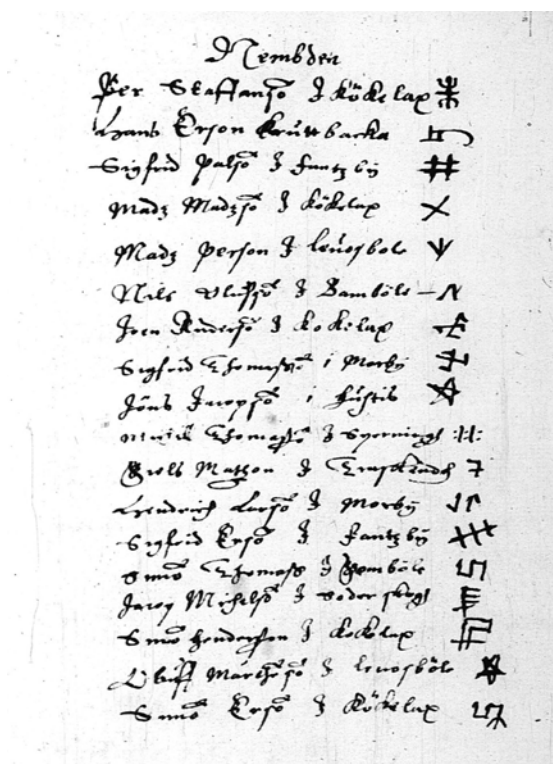 Nembden
Per Staffansſo I Kökelax
Hans Erson Kruttbacka
Sigfrid Palsſo I Fantzby
Madz Madzſo I Kökelax
Madz Person I Leuosbole
Nils Oluſſo I Bamböle
Joen Anderſſo I Kokelax
Sigfrid Thomaſſo i Morby
Jöns Jacopſo i
Thomaſſo I
Mattzon I
Hendrich Larſo I Morby
Sigfrid Erſo I Fantzby
Simo Thomaſſ I Bemböle
Jacop Michelſo I Soderſkogt
Simo Hendersſon I Kokelax
Oluff Martheſſo I Leuosböle
Simo Erſo I Kökelax